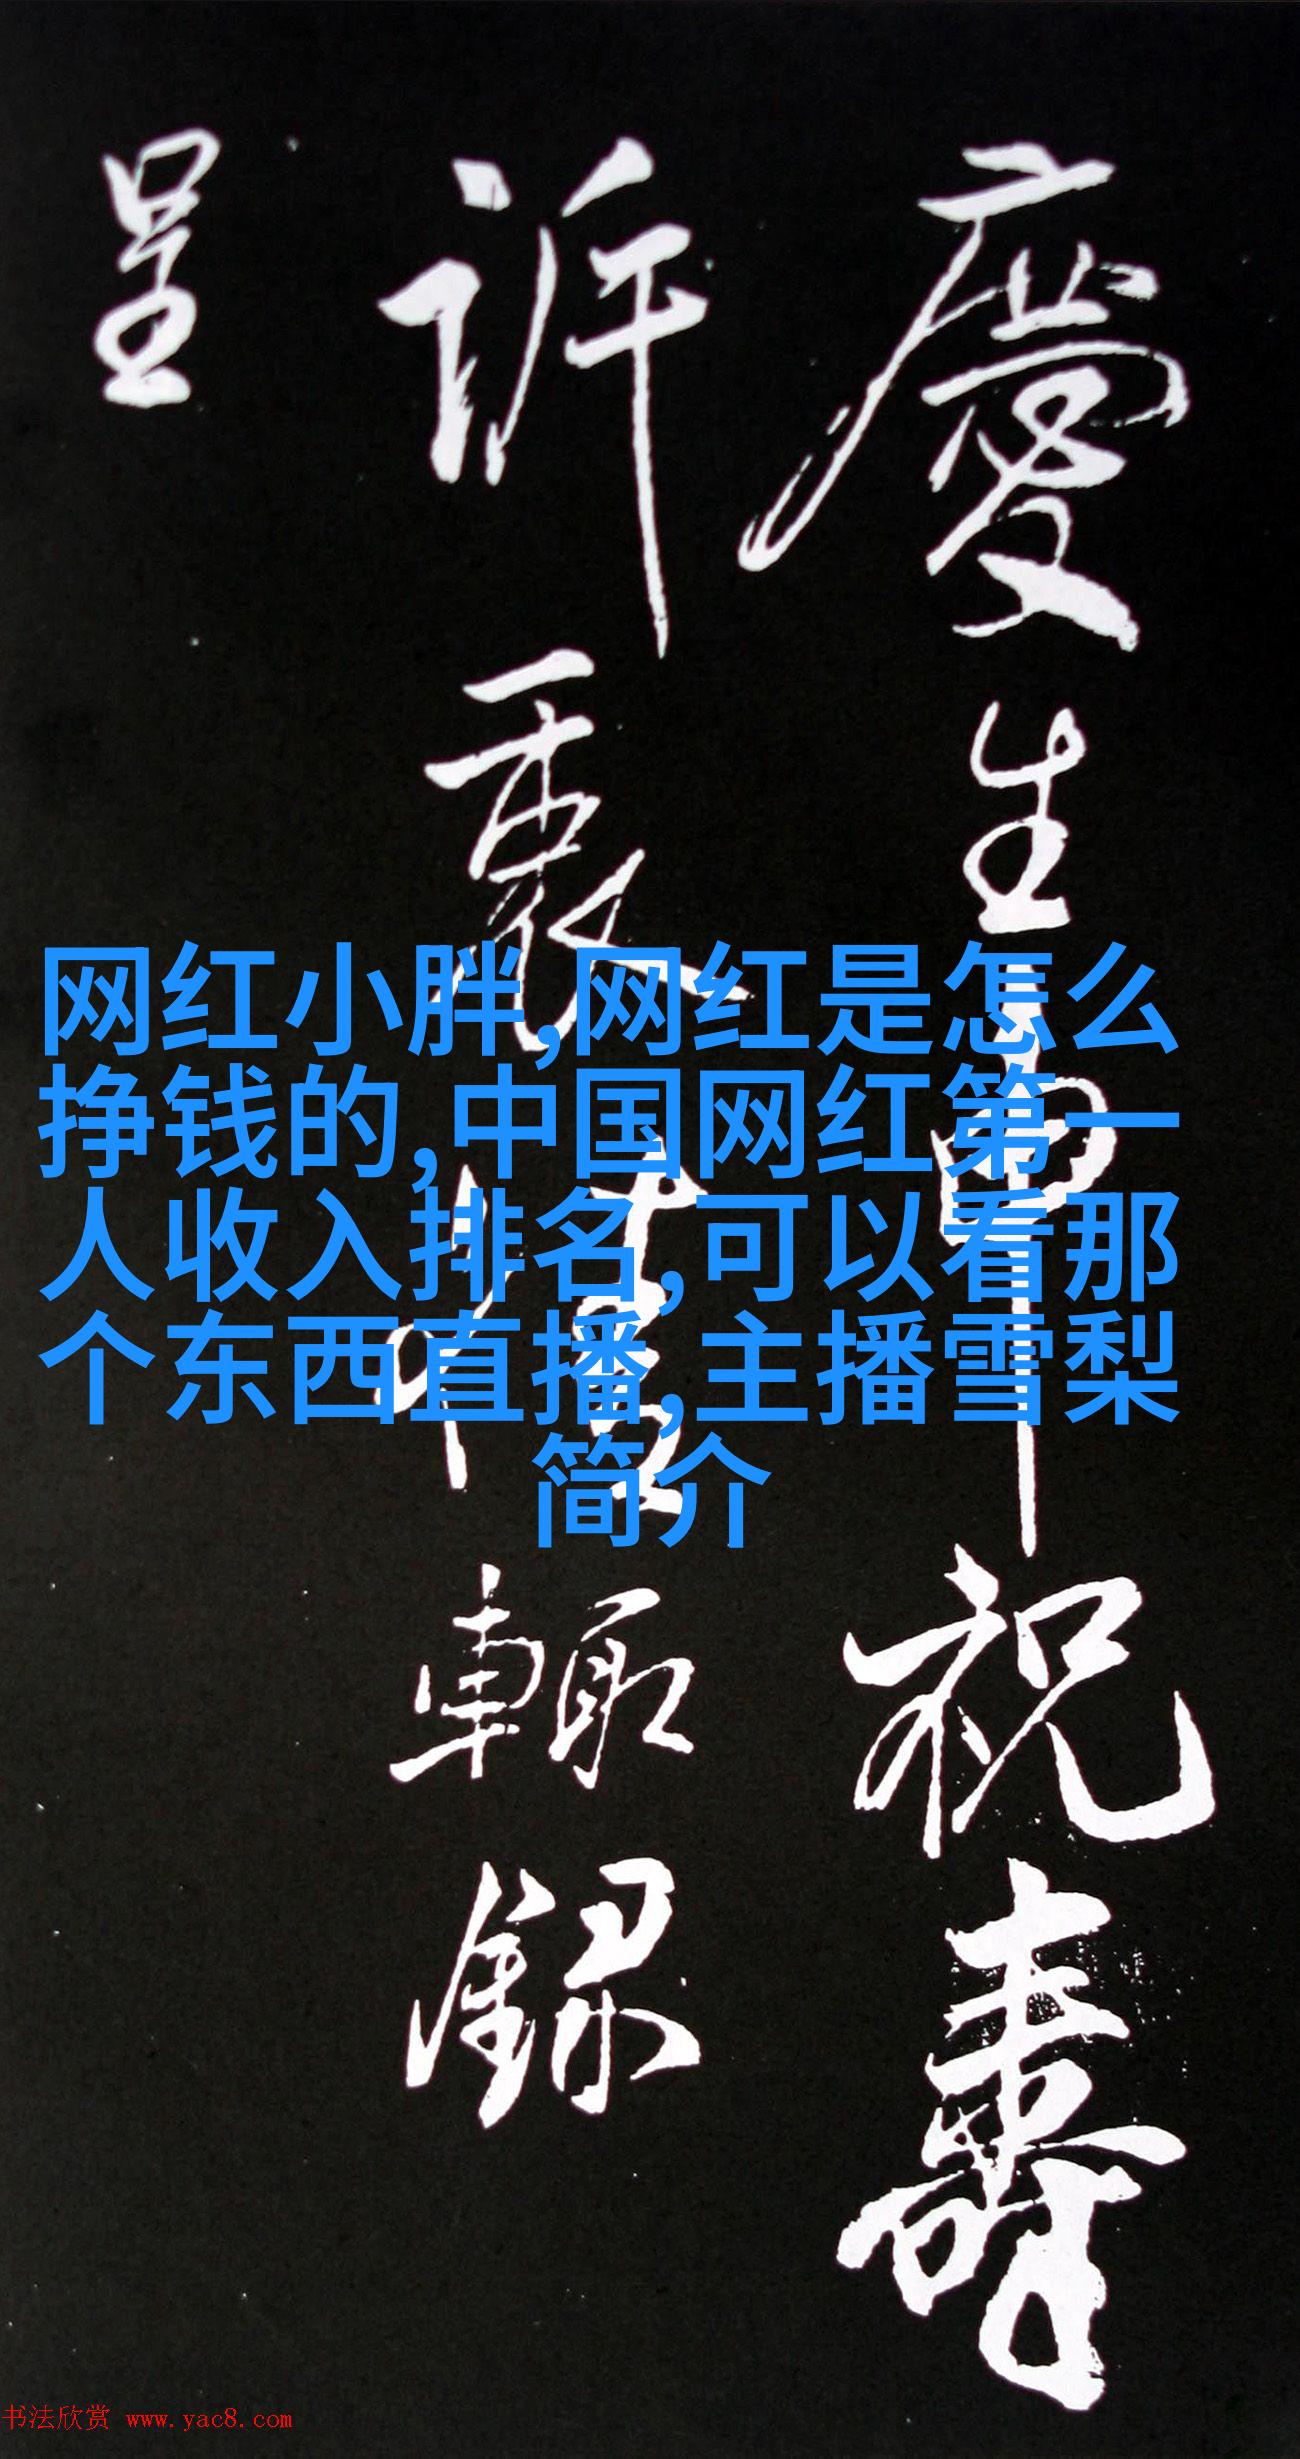 慶生申祝壽
訴衷情輙録
呈
网红小胖,网红是怎么
挣钱的,中国网红第一
人收入排名,可以看那
个东西直播,主播雪梨
简介
书法欣赏 www.yac8.com